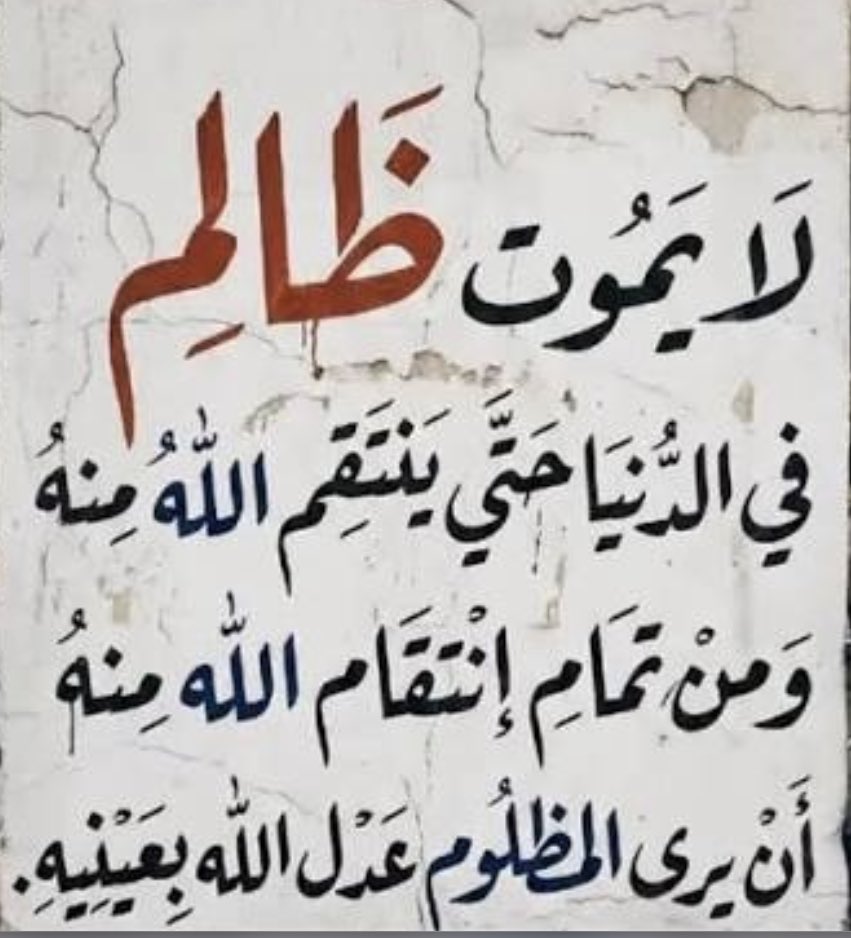 لَا يَمُوت ظَالِم
في الدُّنيَا حَتَّي يَنتَقِم اللهُ مِنهُ
وَمنْ تمَامِ إنْتقَام الله مِنهُ
أَنْ يرى المظلُوم عَدْل الله بِعَيْنِيهِ.